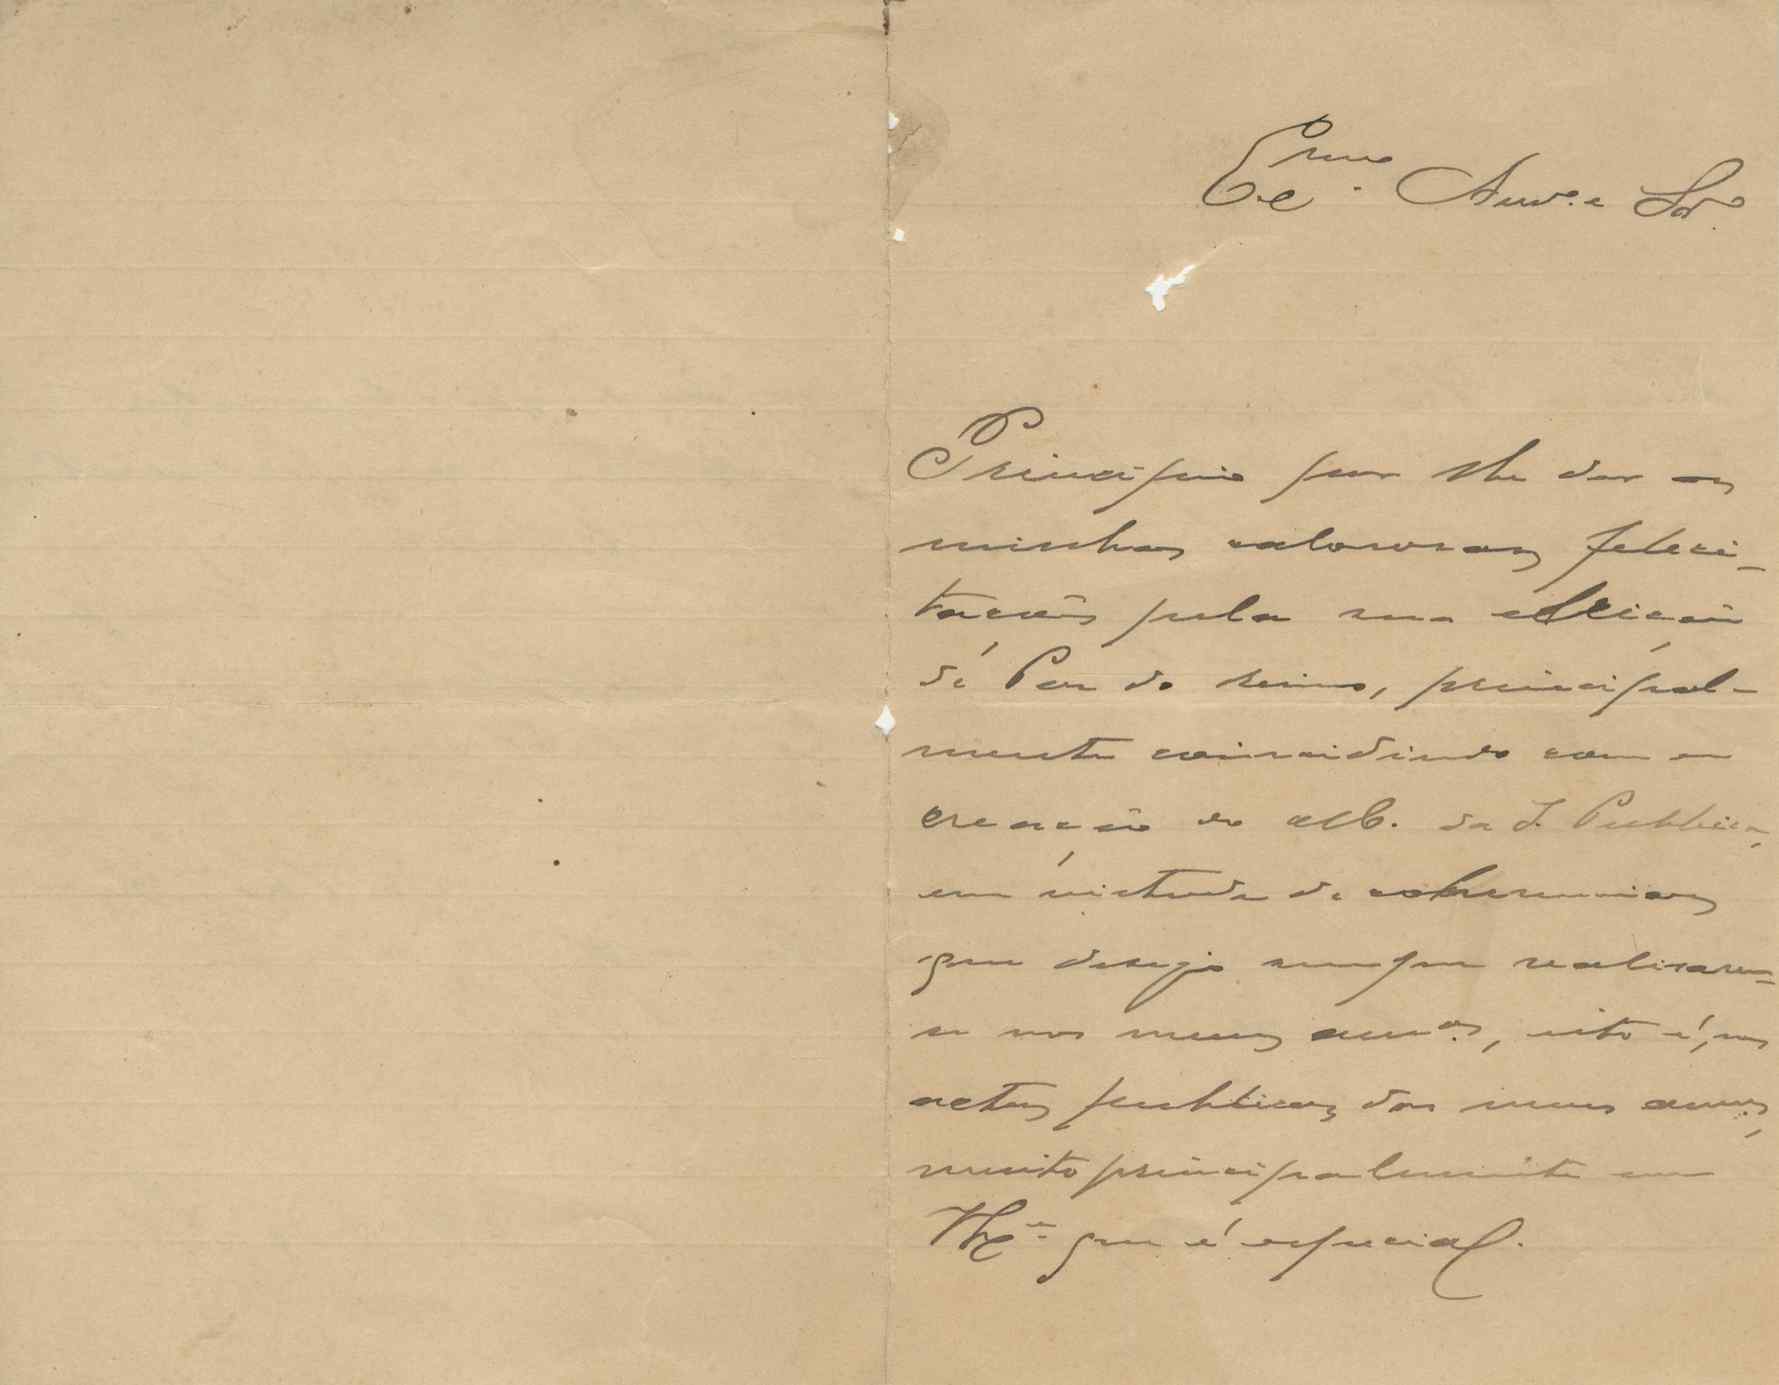 Exmo. Amo. e Sr.
Principio por lhe dar as
minhas calorosas felici-
tações pela sua elleição
de Par do reino, principal-
mente coincidindo com a
creação do M. da I. Publica,
em virtude de
que desejo sempre realisarem-
se nos meus amos., isto é, nos
actos publicos dos meus amos.,
muito principalmente em
V. Exa. que é especial.